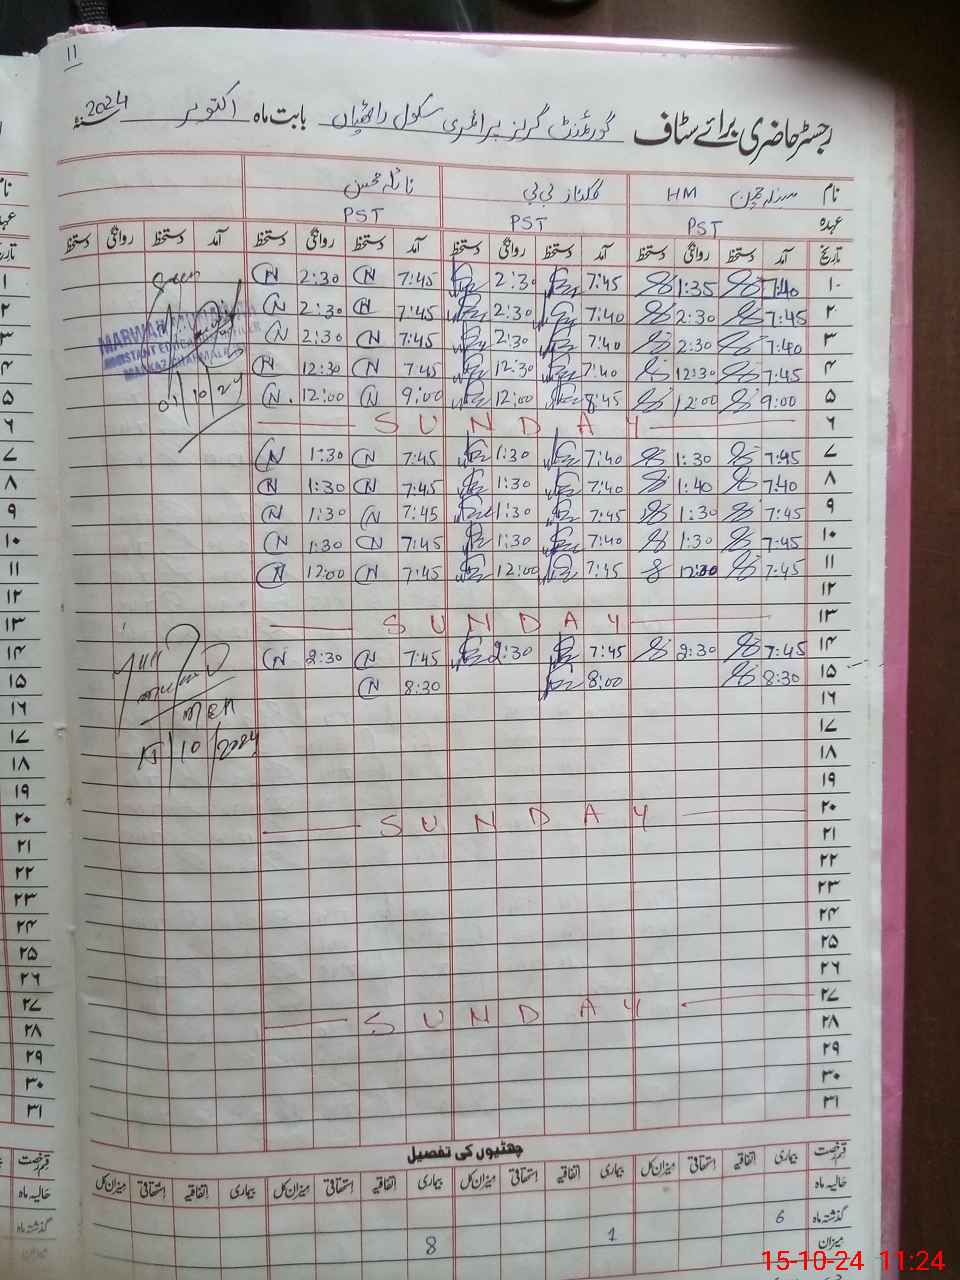 11
رجسٹر حاضری برائے سٹاف گورنمنٹ گرلز پرائمری سکول بابت ماہ اکتوبر 2024
نام HM نائلہ محسن
عہدہ PST PST PST
تاریخ آمد دستخط روانگی دستخط آمد دستخط روانگی دستخط آمد دستخط روانگی دستخط آمد دستخط روانگی دستخط
۱ 7:40 1:35 7:45 2:30 7:45 2:30
۲ 7:45 2:30 7:40 2:30 7:45 2:30
۳ 7:40 2:30 7:40 2:30 7:45 2:30
۴ 7:45 12:30 7:40 12:30 7:45 12:30
۵ 9:00 12:00 8:45 12:00 9:00 12:00
۶ SUNDAY
۷ 7:45 1:30 7:40 1:30 7:45 1:30
۸ 7:40 1:40 7:40 1:30 7:45 1:30
۹ 7:45 1:30 7:45 1:30 7:45 1:30
۱۰ 7:45 1:30 7:40 1:30 7:45 1:30
۱۱ 7:45 7:45 12:00 7:45 12:00
۱۲
۱۳ SUNDAY
۱۴ 7:45 2:30 7:45 2:30 7:45 2:30
۱۵ 8:30 8:00 8:30
۱۶
۱۷
۱۸
۱۹
۲۰ SUNDAY
۲۱
۲۲
۲۳
۲۴
۲۵
۲۶
۲۷ SUNDAY
۲۸
۲۹
۳۰
۳۱
01/10/24
MEA
15/10/2024
چھٹیوں کی تفصیل
قسم رخصت بیماری اتفاقیہ استحقاقی میزان کل بیماری اتفاقیہ استحقاقی میزان کل بیماری اتفاقیہ استحقاقی میزان کل بیماری اتفاقیہ استحقاقی میزان کل
حالیہ ماہ
گذشتہ ماہ 6 1 8
میزان
15-10-24 11:24